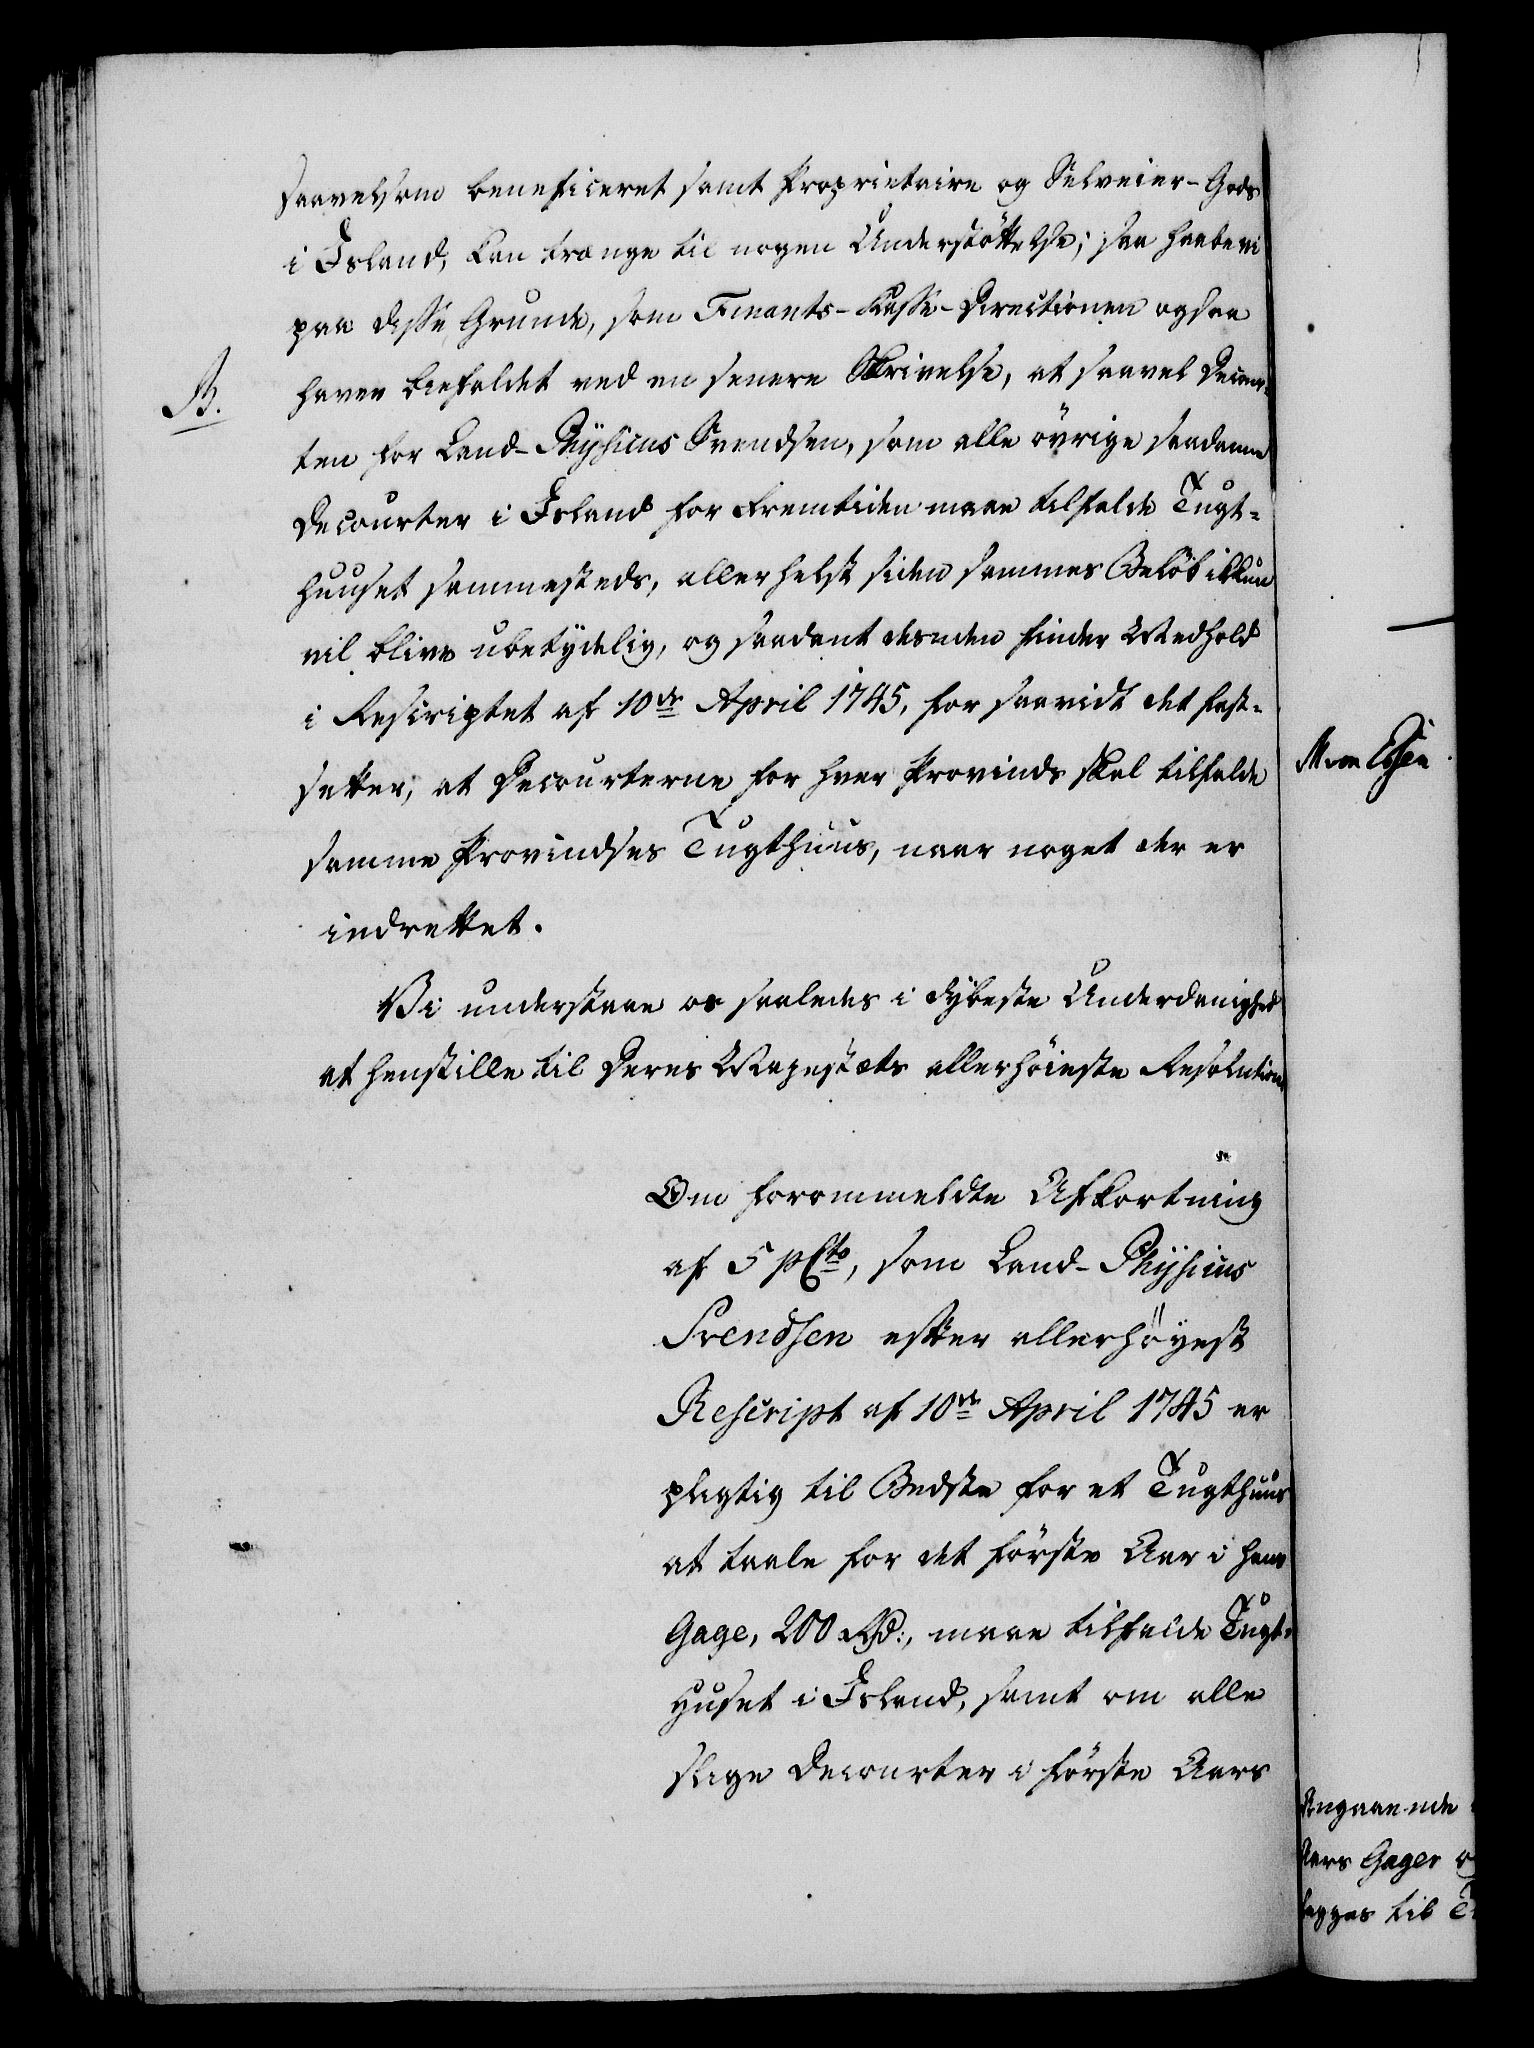 saavelsom beneficeret samt Proprietaire og Selveier-Gods
i Island, kan trænge til nogen Understøttelse; saa haabe vi
paa disse Grunde, som Finants-Kasse-Directionen ogsaa
B.
haver biefaldet ved en senere Skrivelse, at saavel Decour-
ten for Land-Physicus Svendsen, som alle øvrige saadanne
Decourter i Island for Fremtiden maae tilfalde Tugt-
huuset sammesteds, allerhelst siden sammes Beløb ikkun
vil blive ubetydelig, og saadant desuden finder Medhold
i Rescriptet af 10de April 1745, for saavidt det fast-
setter, at Decourterne for hver Provinds skal tilfalde
samme Provindses Tugthuus, naar noget der er
indrettet.
Vi understaae os saaledes i dybeste Underdanighed
at henstille til Deres Majestæts allerhøieste Resolution
Om forommeldte Afkortning
af 5 pCto, som Land-Physicus
Svendsen efter allerhøyest
Rescript af 10de April 1745 er
pligtig til Bedste for et Tugthuus
at taale for det første Aar i hans
Gage, 200 Rd:, maae tilfalde Tugt-
Huset i Island, samt om alle
slige Decourter i første Aars
Angaaende
Aars Gager
lægges til